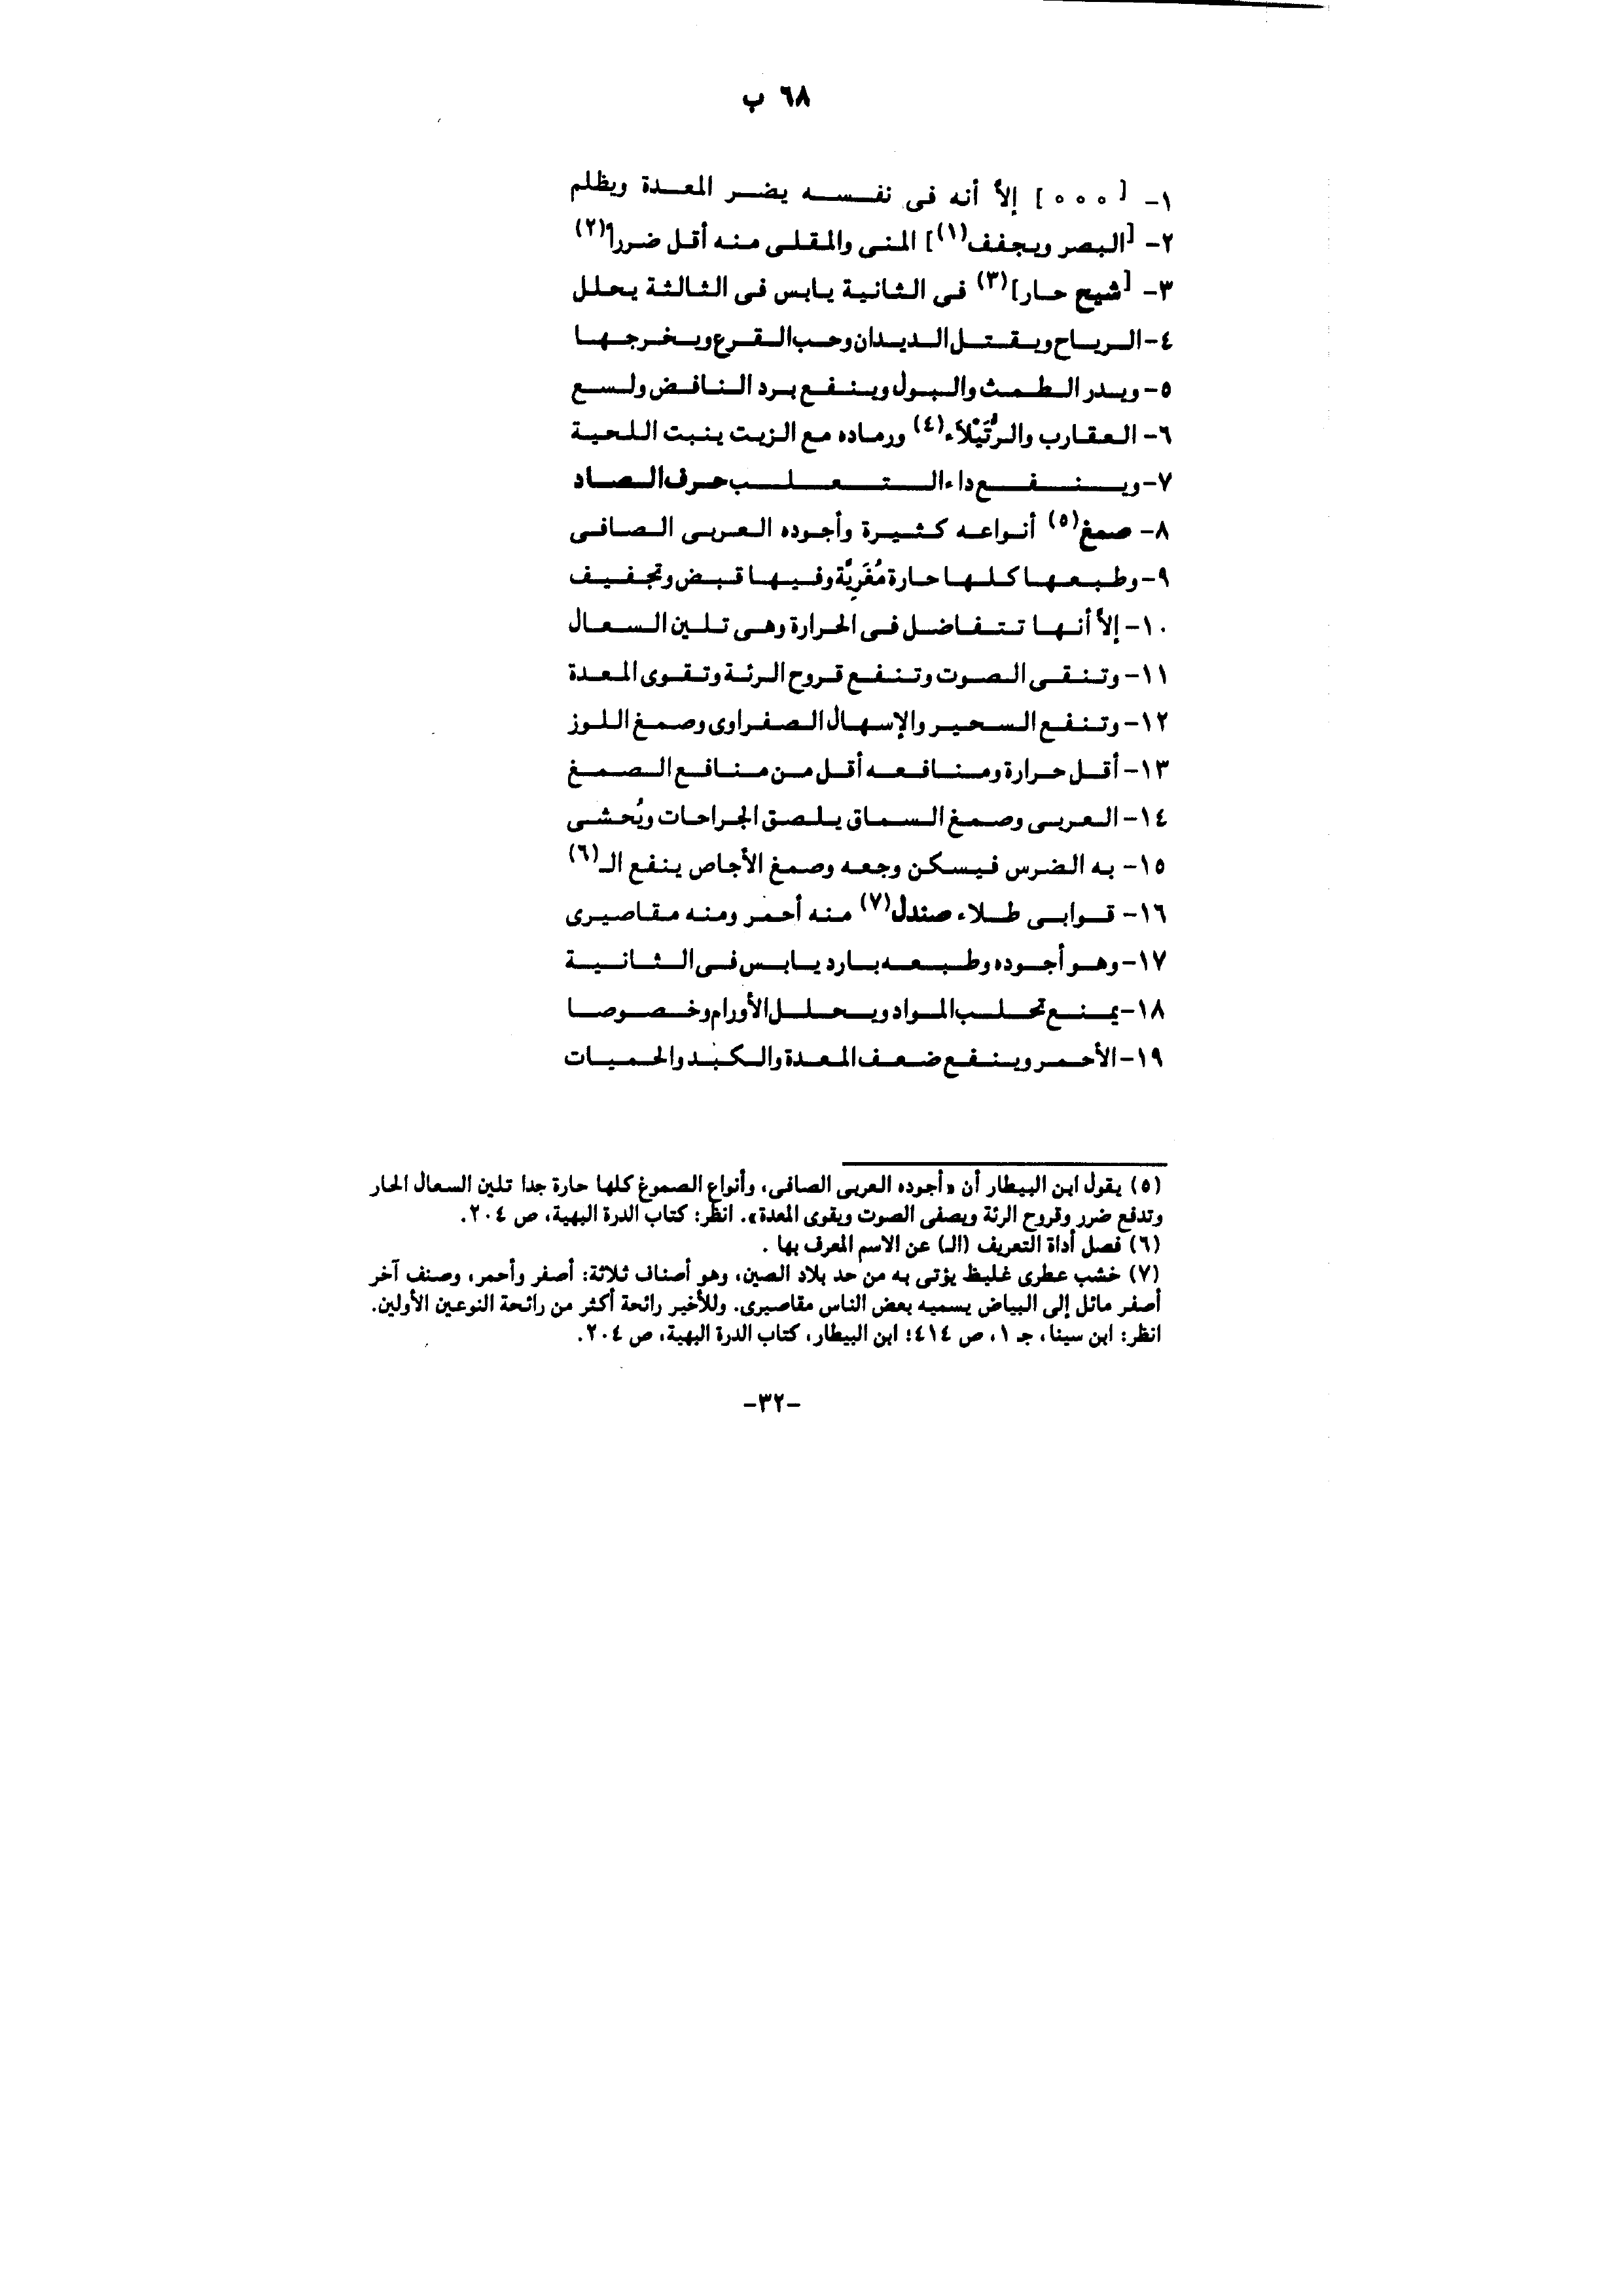 ٦٨ ب
١- [ ٥ ٥ ٥ ] إلاّ أنه فى نفسه يضر المعدة ويظلم
٢- [البصر ويجفف(١)] المنى والمقلى منه أقل ضررا(٢)
٣- [شيح حار](٣) فى الثانية يابس فى الثالثة يحلل
٤- الرياح ويقتل الديدان وحب القرع ويخرجها
٥- ويدر الطمث والبول وينفع برد النافض ولسع
٦- العقارب والرُّتَيْلاَء(٤) ورماده مع الزيت ينبت اللحية
٧- وينفع داء الثعلب حرف الصاد
٨- صمغ(٥) أنواعه كثيرة وأجوده العربى الصافى
٩- وطبعها كلها حارة مُغَرِيَّة وفيها قبض وتجفيف
١٠- إلاّ أنها تتفاضل فى الحرارة وهى تلين السعال
١١- وتنقى الصوت وتنفع قروح الرئة وتقوى المعدة
١٢- وتنفع السحير والإسهال الصفراوى وصمغ اللوز
١٣- أقل حرارة ومنافعه أقل من منافع الصمغ
١٤- العربى وصمغ السماق يلصق الجراحات ويُحشى
١٥- به الضرس فيسكن وجعه وصمغ الأجاص ينفع الـ(٦)
١٦- قوابى طلاء صندل(٧) منه أحمر ومنه مقاصيرى
١٧- وهو أجوده وطبعه بارد يابس فى الثانية
١٨- يمنع تحلب المواد ويحلل الأورام وخصوصا
١٩- الأحمر وينفع ضعف المعدة والكبد والحميات
(٥) يقول ابن البيطار أن «أجوده العربى الصافى، وأنواع الصموغ كلها حارة جدا تلين السعال الحار
وتدفع ضرر وقروح الرئة ويصفى الصوت ويقوى المعدة». انظر: كتاب الدرة البهية، ص ٢٠٤.
(٦) فصل أداة التعريف (الـ) عن الاسم المعرف بها .
(٧) خشب عطرى غليظ يؤتى به من حد بلاد الصين، وهو أصناف ثلاثة: أصفر وأحمر، وصنف آخر
أصفر مائل إلى البياض يسميه بعض الناس مقاصيرى. وللأخير رائحة أكثر من رائحة النوعين الأولين.
انظر: ابن سينا، جـ ١، ص ٤١٤؛ ابن البيطار، كتاب الدرة البهية، ص ٢٠٤.
-٣٢-